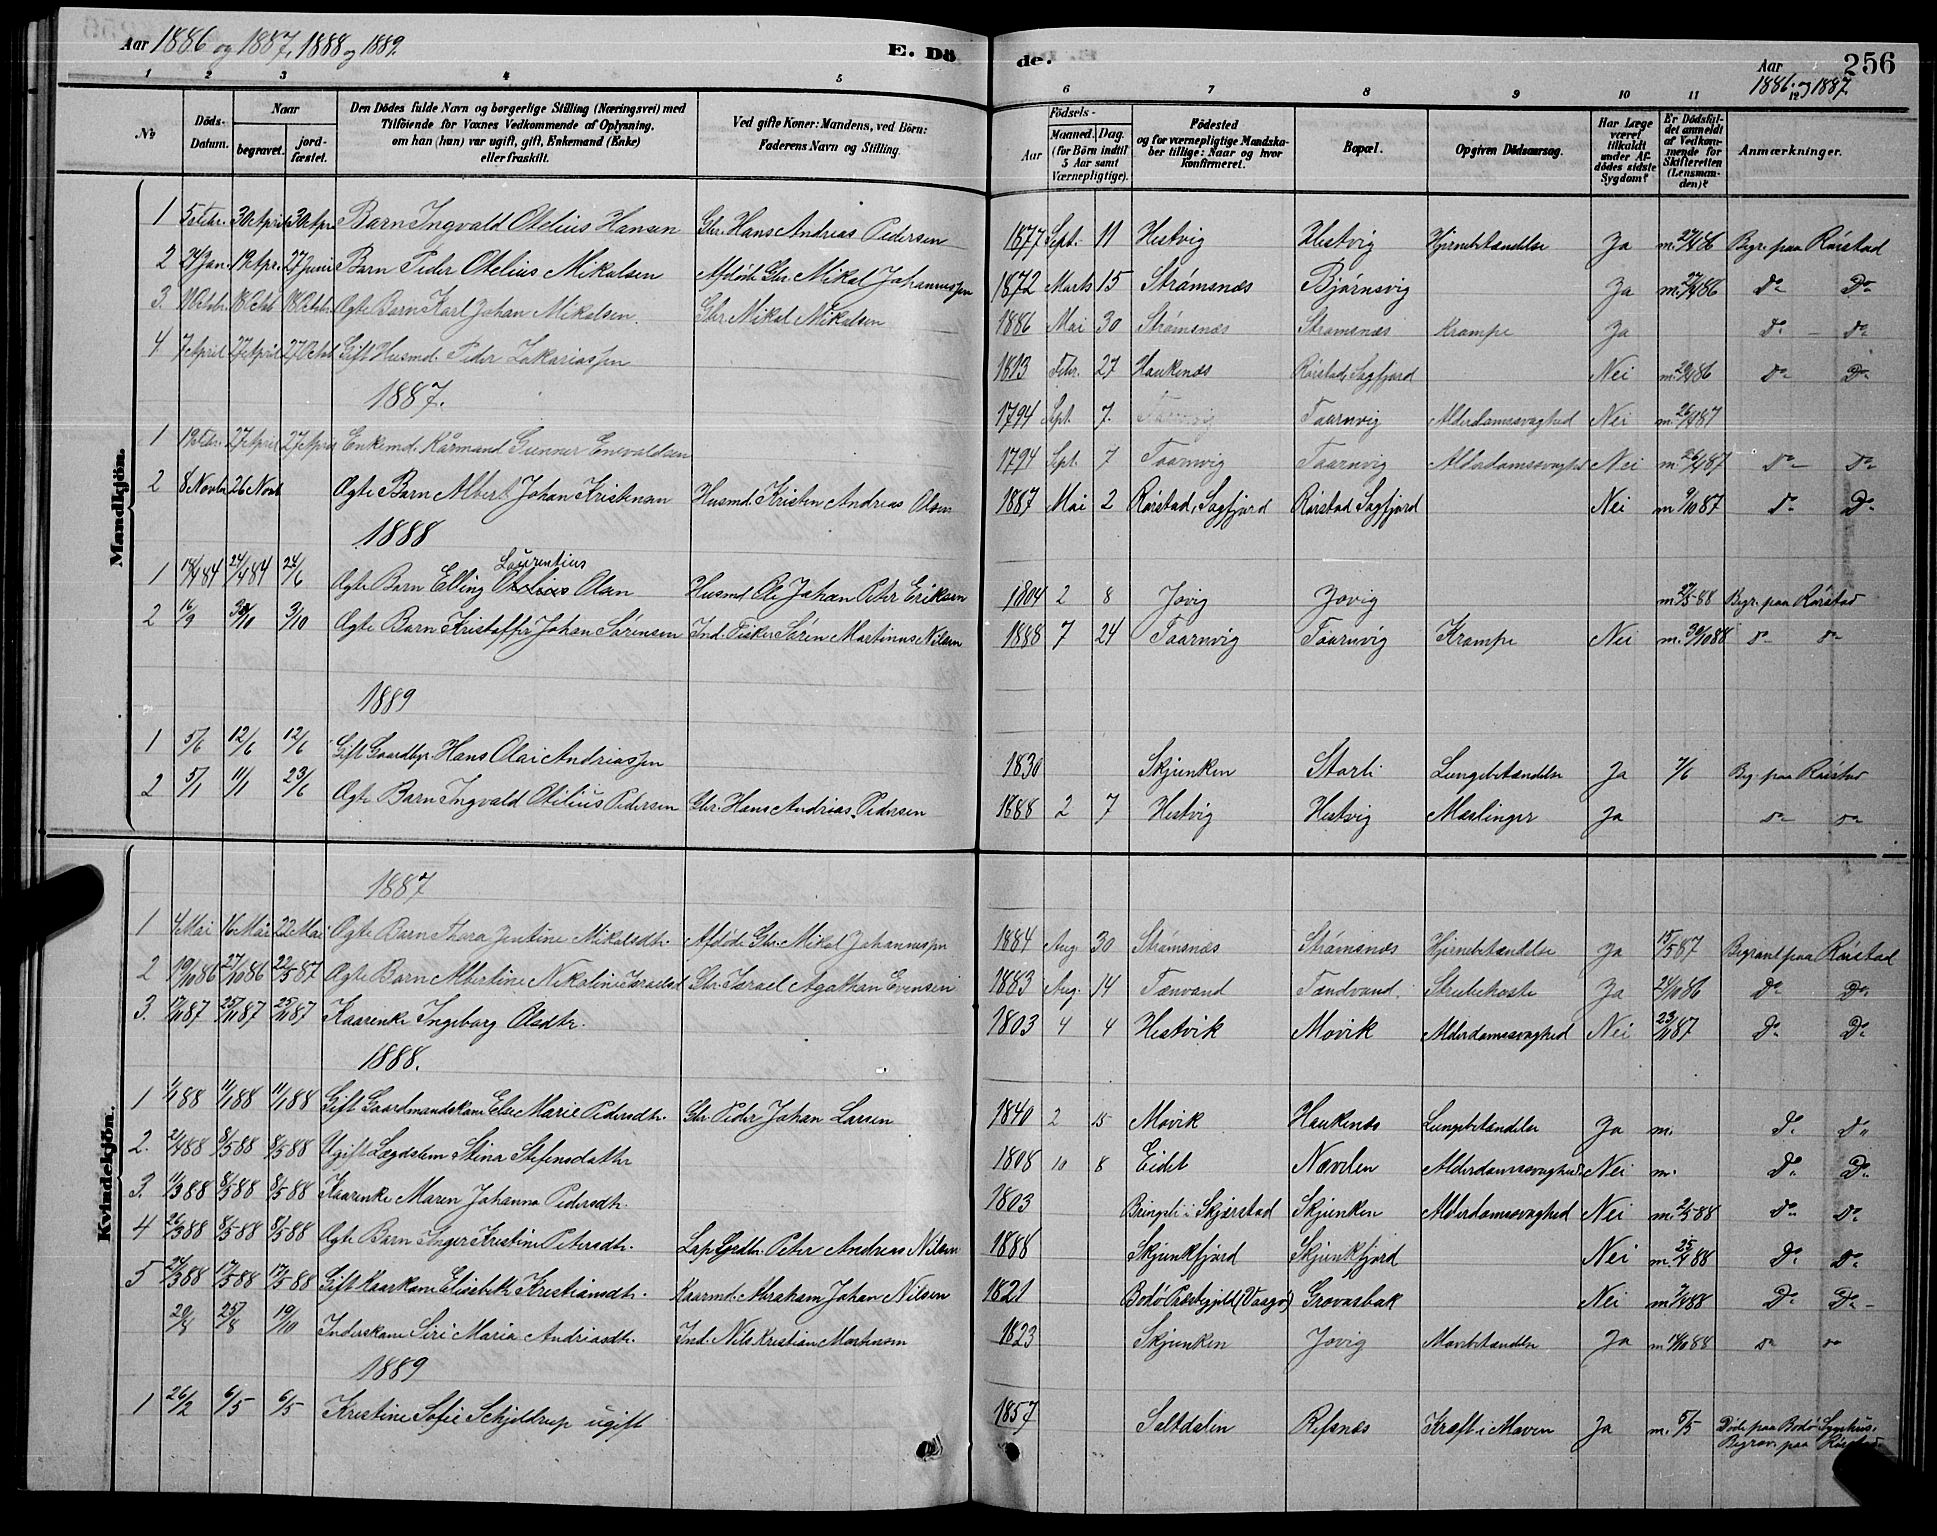 Aar 1886 og 1887, 1888 og 1889. E. Döde. Aar 1886 og 1887 256
1 2 3 4 5 6 7 8 9 10 11 12
No Döds-Datum. Naar begravet. jordfæstet. Den Dödes fulde Navn og borgerlige Stilling (Næringsvei) med Tilföiende for Voxnes Vedkommende af Oplysning, om han (hun) var ugift, gift, Enkemand (Enke) eller fraskilt. Ved gifte Koner: Mandens, ved Börn: Faderens Navn og Stilling. Födsels- Aar Maaned. Dag. (for Börn indtil 5 Aar samt Værnepligtige). Födested og for værnepligtige Mandskaber tillige: Naar og hvor konfirmeret. Bopæl. Opgiven Dödsaarsag. Har Læge været tilkaldt under Afdödes sidste Sygdom? Er Dödsfaldet anmeldt af Vedkommende for Skifteretten (Lensmanden)? Anmærkninger.
Mandkjön.
1 5 Febr. 30 April 30 Apr Barn Ingvald Otelius Hansen Gbr. Hans Andrias Pedersen 1877 Sept. 11 Hestvig Hestvig Hjernebetændelse Ja Begr. paa Rörstad
2 24 Jan. 19 Apr. 27 Juni Barn Peder Otelius Mikalsen Afdöde Gbr. Mikal Johannessen 1872 Marts 15 Strömsnæs Björnsvig Ja Do Do
3. 18 Octb 18 Octbr. Ægte Barn Karl Johan Mikalsen Gbr. Mikal Mikalsen 1886 Mai 30 Strömsnæs Strömsnæs Krampe Ja Do Do
4 7 April 27 April 27 Octob Gift Husmd. Peder Zakariassen 1813 Febr. 27 Haukenæs Rörstad, Sagfjord Nei Do Do
1887.
1794 Sept. 7. Taarnvig Taarnvig Alderdomssvaghed Nei
1 19 Febr. 27 April 27 April Enkemd. Kårmand Gunner Enevaldsen 1794 Sept. 7 Taarnvig Taarnvig Alderdomssvaghed Nei Do Do
2 8 Novbr 26 Novb Ægte Barn Albert Johan Kristensen Husmd. Kristen Andreas Olsen 1887 Mai 2 Rörstad, Sagfjord Rörstad Sagfjord Nei Do Do
1888
Laurentius
1 18/4 84 24/4 84 24/6 Ægte Barn Elling Otelius Olsen Husmd. Ole Johan Peter Eriksen 1804 2 8 Jovig Jovig Begr. paa Rörstad
2 16/9 3/10 3/10 Ægte Barn Kristoffer Johan Sörensen Ind. Fisker Sören Martinus Nilsen 1888 7 24 Taarnvig Taarnvig Krampe Nei m. 30/10 88 Do Do
1889
1 5/6 12/6 12/6 Gift Gaardbr. Hans Olai Andriassen 1830 Skjunken Storli Lungebetændelse Ja 7/6 Beg. paa Rörstad
2 5/1 11/1 23/6 Ægte Barn Ingvald Otilius Pedersen Gbr. Hans Andrias Pedersen 1888 2 7 Hestvig Hestvig Mæslinger Ja Do Do
Kvindekjön.
1887
1 4 Mai 16 Mai 22 Mai Ægte Barn Thora Jentine Mikalsdtr. Afdöde Gbr. Mikal Johannessen 1884 Aug. 30 Strömsnæs Strömsnæs Hjernebetændelse Ja 15/5 87 Begravet paa Rörstad
2 19/10 86 27/10 86 22/5 87 Ægte Barn Albertine Nikoline Israelsd Gbr. Israel Agathan Evensen 1883 Aug. 14 Tænvand Tændvand. Strubehoste Ja 24/10 86 Do Do
3. 17/11 87 25/11 87 25/11 87 Kaarenke Ingeborg Olsdtr. 1803 4 4 Hestvik Movik Alderdomssvaghed Nei 23/11 87 Do Do
1888.
1 1/1 88 11/1 88 11/1 88 Gift Gaardmandskone Else Marie Pedersdtr. Gbr. Peder Johan Larsen 1840 2 15 Movik Haukenæs Lungebetændelse Ja m. Do Do
2. 8/5 88 8/5 88 Ugift Lægdslem Stina Stefensdatter 1808 10 8 Eidet Nævelen Alderdomssvaghed Nei m. Do Do
3. 11/3 88 8/5 88 8/5 88 Kaarenke Maren Johanna Pedersdtr. 1803 Bringsli i Skjerstad Skjunken Alderdomssvaghed Nei m. 2/5 88 Do Do
4 26/3 88 8/5 88 8/5 88 Ægte Barn Inger Kristine Petersdtr. Lap Peter Andreas Nilsen 1888 Skjunkfjord Skjunkfjord Nei m. 25/4 88 Do Do
5 24/3 88 17/5 88 17/5 88 Gift Kaarkone Elisebeth Kristiansdtr. Kaarmd. Abraham Johan Nilsen 1821 Bodö Præstegjeld (Vaagö) Grovasbak Nei Do Do
20/8 25/8 19/10 Inderskone Siri Maria Andriasdtr. Ind. Nils Kristian Mortensen 1823 Skjunken Jovig Mavebetændelse Ja m 14/10 88 Do Do
1889
1 26/2 6/5 6/5 Kristine Sofie Schjeldrup ugift 1857 Saltdalen Refsnæs Kræft i Maven Ja m. 5/5 Döde paa Bodö Sygehus. Begrav. paa Rörstad